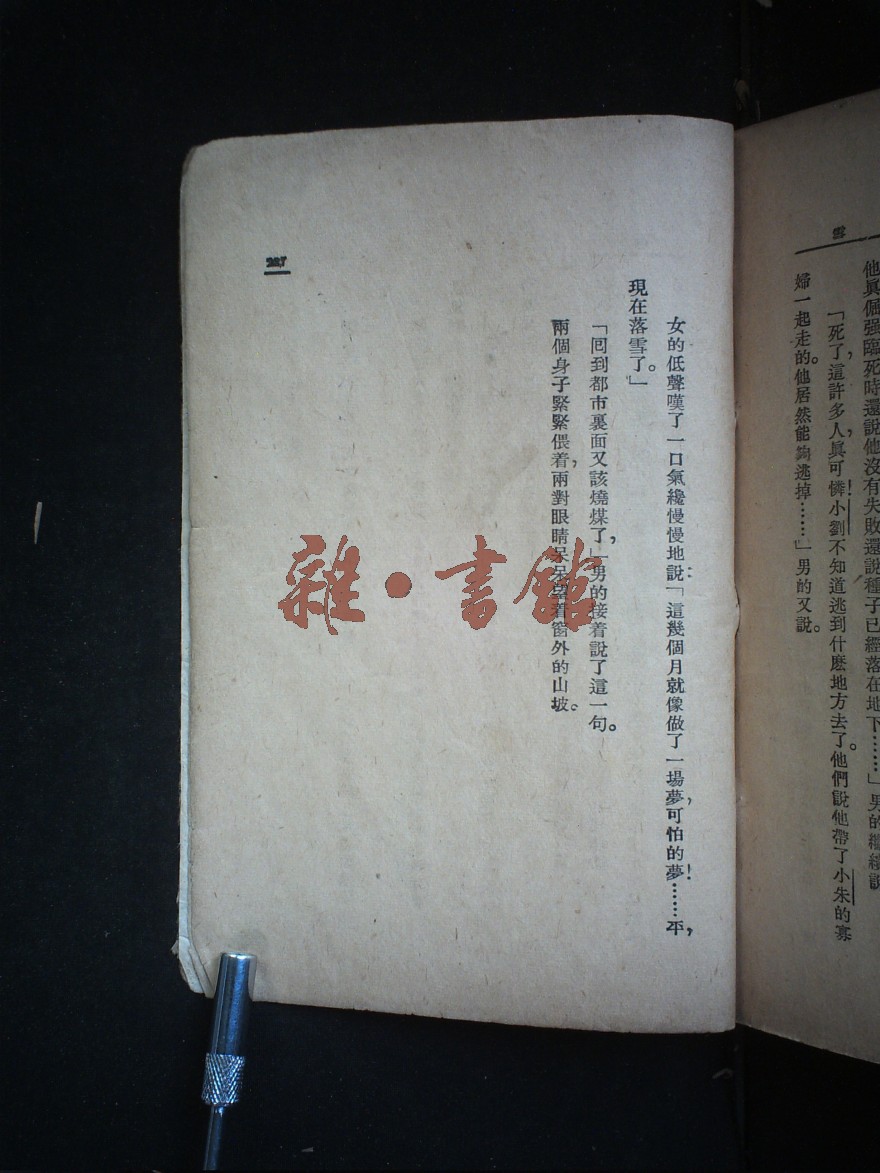 雪
他眞倔强臨死時還說他沒有失敗還說種子已經落在地下……」男的繼續說
「死了，這許多人，眞可憐！小劉不知道逃到什麽地方去了。他們說他帶了小朱的寡
婦一起走的。他居然能夠逃掉……」男的又說。
女的低聲嘆了一口氣纔慢慢地說：「這幾個月就像做了一場夢，可怕的夢！……平，
現在落雪了。」
「回到都市裏面又該燒煤了，」男的接着說了這一句。
兩個身子緊緊偎着，兩對眼睛呆呆望着窗外的山坡。
227
雜·書館